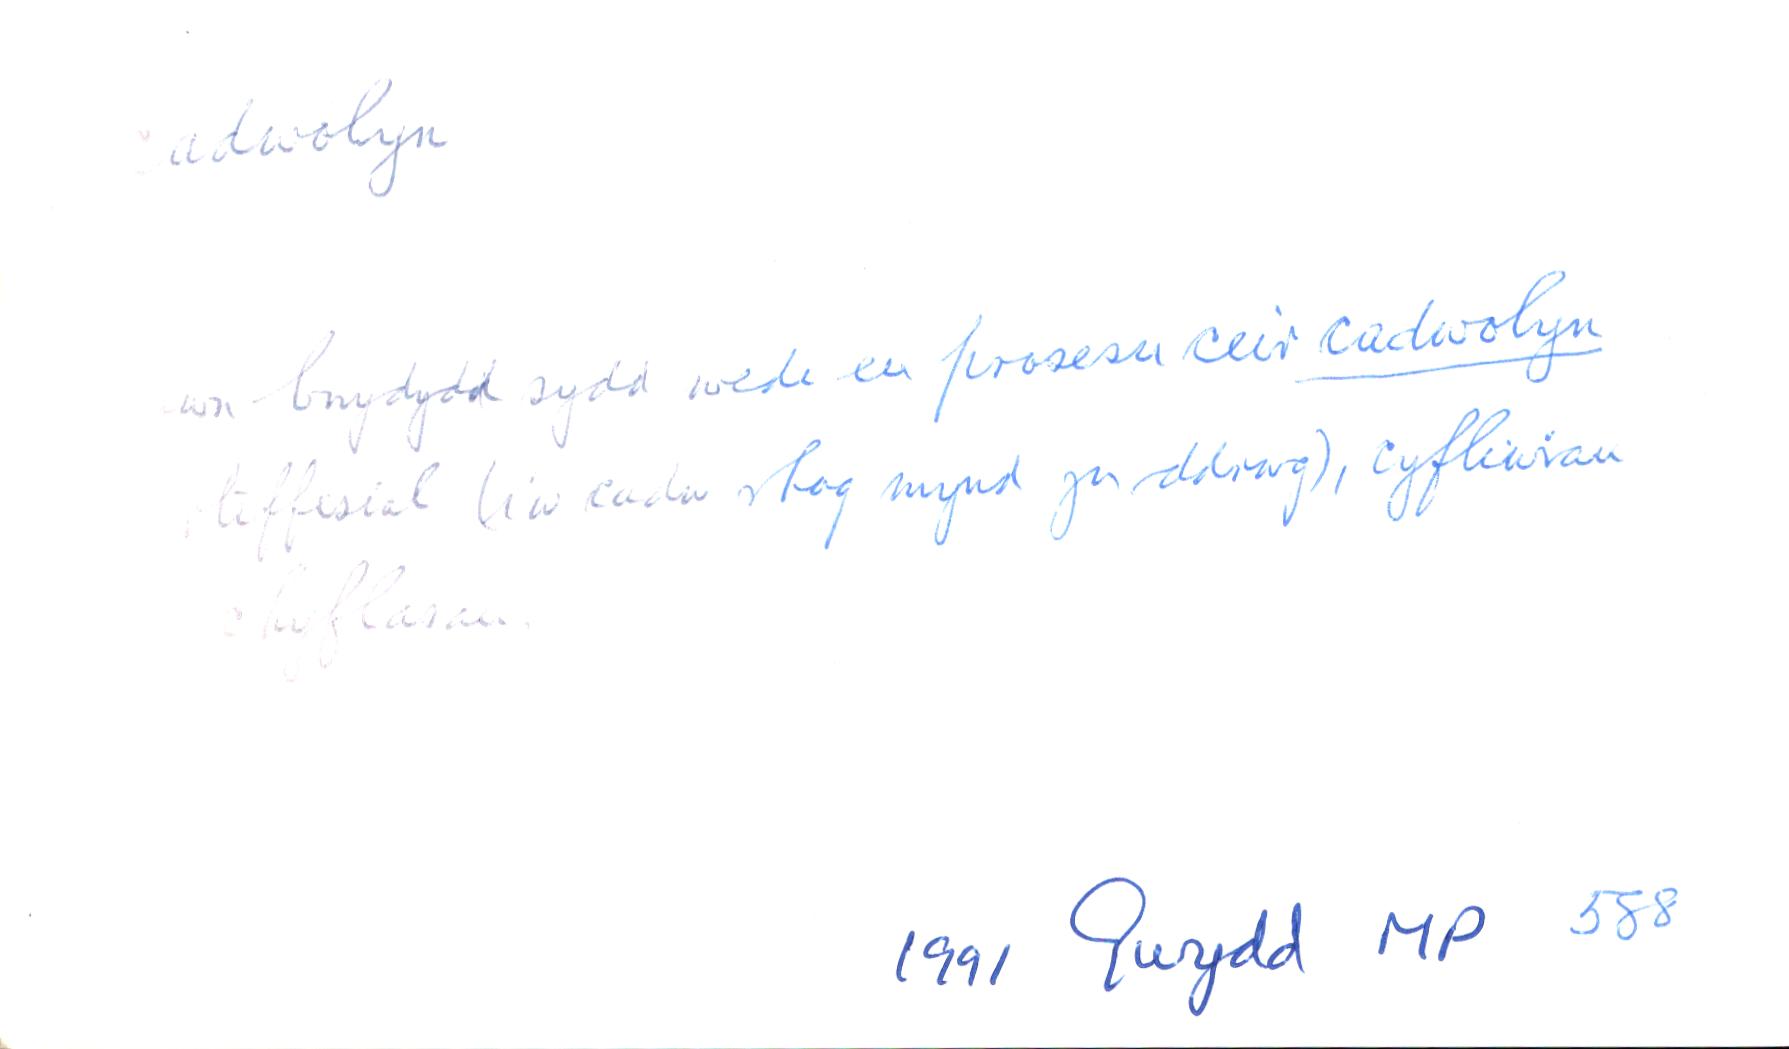 cadwolyn
mwn bwydydd sydd wedi eu prosesu ceir cadwolyn
artiffisial (i'w cadw rhag mynd yn ddrwg), cyfliwiau
chyflasau.
1991 Gwydd MP 588